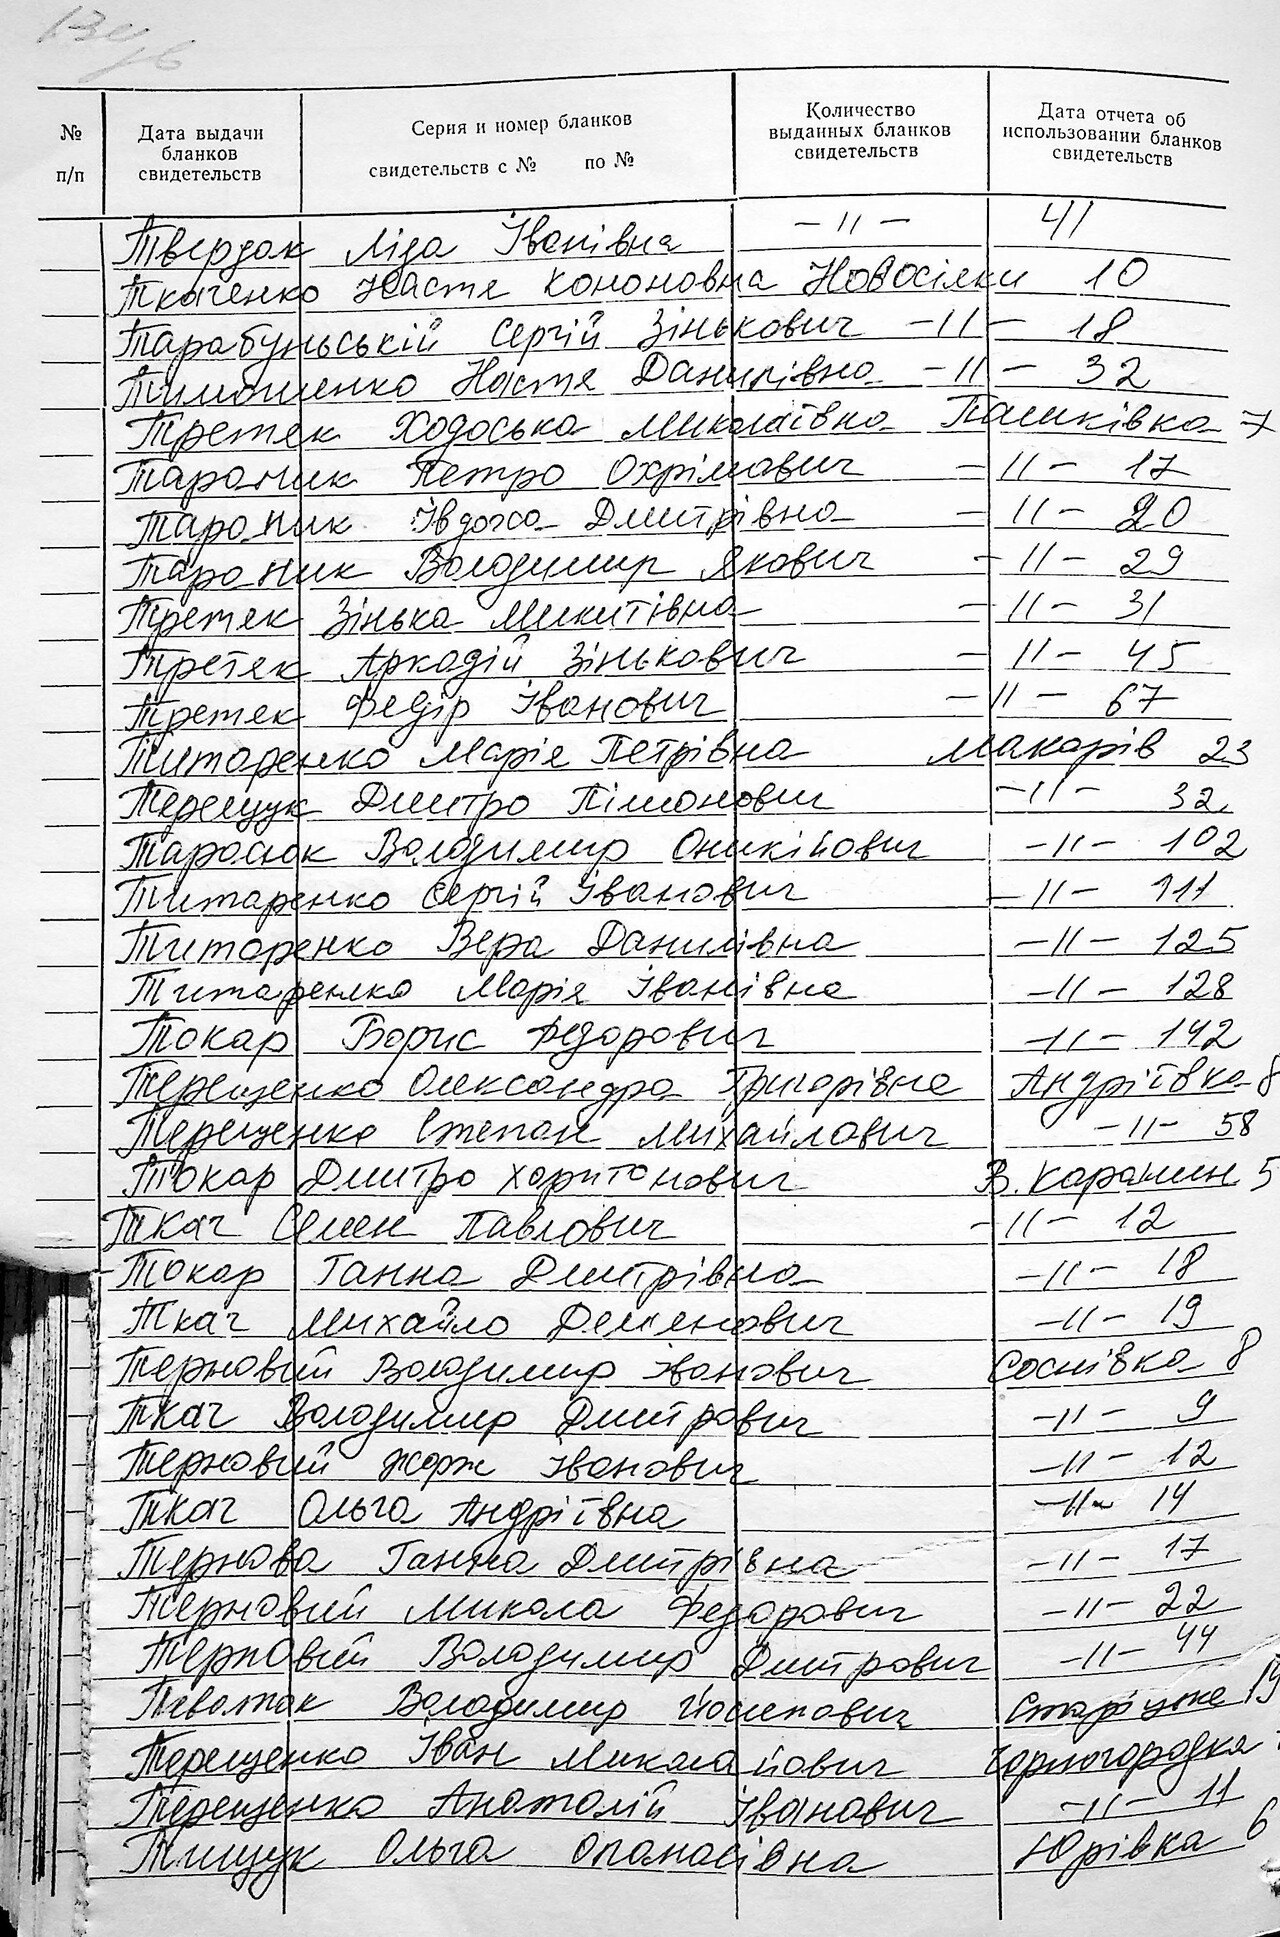 № п/п
Дата выдачи бланков свидетельств
Серия и номер бланков свидетельств с № по №
Количество выданных бланков свидетельств
Дата отчета об использовании бланков свидетельств
Твердак Ліда Іванівна -11- 41
Ткаченко Настя Кононовна Новосілки 10
Тарабунський Сергій Зінькович -11- 18
Тимошенко Настя Данилівна -11- 32
Третяк Ходоська Миколаївна Пашківка 7
Тараник Петро Охрімович -11- 17
Тараник Івдоха Дмитрівна -11- 20
Тараник Володимир Якович -11- 29
Третяк Зінька Микитівна -11- 31
Третяк Аркадій Зінькович -11- 45
Третяк Федір Іванович -11- 67
Титаренко Марія Петрівна Макарів 23
Терещук Дмитро Пімонович -11- 32
Тарасюк Володимир Оникійович -11- 102
Титаренко Сергій Іванович -11- 111
Титаренко Вера Данилівна -11- 125
Титаренко Марія Іванівна -11- 128
Токар Борис Федорович -11- 142
Терещенко Олександра Григорівна Андріївка 8
Терещенко Степан Михайлович -11- 58
Токар Дмитро Харитонович В. Карашин 5
Ткач Семен Павлович -11- 12
Токар Ганна Дмитрівна -11- 18
Ткач Михайло Дем'янович -11- 19
Терновий Володимир Іванович Соснівка 8
Ткач Володимир Дмитрович -11- 9
Терновий Жорж Іванович -11- 12
Ткач Ольга Андріївна -11- 14
Тернова Ганна Дмитрівна -11- 17
Терновий Микола Федорович -11- 22
Терновий Володимир Дмитрович -11- 44
Володимир Йосипович Старіцьке 19
Терещенко Іван Миколайович Чорногородка
Терещенко Анатолій Іванович -11- 11
Тищук Ольга Опанасівна Юрівка 6